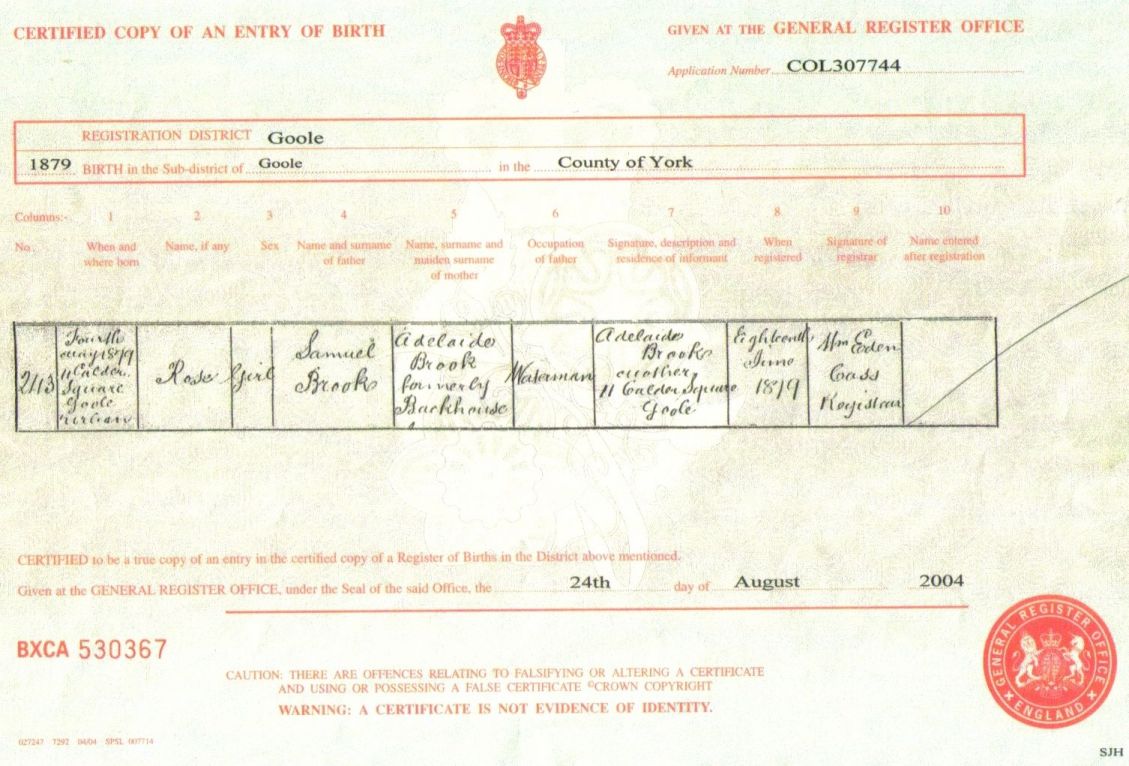 CERTIFIED COPY OF AN ENTRY OF BIRTH
GIVEN AT THE GENERAL REGISTER OFFICE
Application Number COL307744
REGISTRATION DISTRICT Goole
1879 BIRTH in the Sub-district of Goole in the County of York
Columns:- 1 2 3 4 5 6 7 8 9 10
No. When and where born Name, if any Sex Name and surname of father Name, surname and maiden surname of mother Occupation of father Signature, description and residence of informant When registered Signature of registrar Name entered after registration
213
Fourth
May 1879
11 Calder
Square
Goole
urban
Rose
Girl
Samuel
Brook
Adelaide
Brook
formerly
Backhouse
Waterman
Adelaide
Brook
mother
11 Calder Square
Goole
Eighteenth
June
1879
Wm Eden
Cass
Registrar
CERTIFIED to be a true copy of an entry in the certified copy of a Register of Births in the District above mentioned.
Given at the GENERAL REGISTER OFFICE, under the Seal of the said Office, the 24th day of August 2004
BXCA 530367
CAUTION: THERE ARE OFFENCES RELATING TO FALSIFYING OR ALTERING A CERTIFICATE
AND USING OR POSSESSING A FALSE CERTIFICATE ©CROWN COPYRIGHT
WARNING: A CERTIFICATE IS NOT EVIDENCE OF IDENTITY.
GENERAL REGISTER OFFICE
ENGLAND
027247 7292 04/04 SPSL 007714
SJH